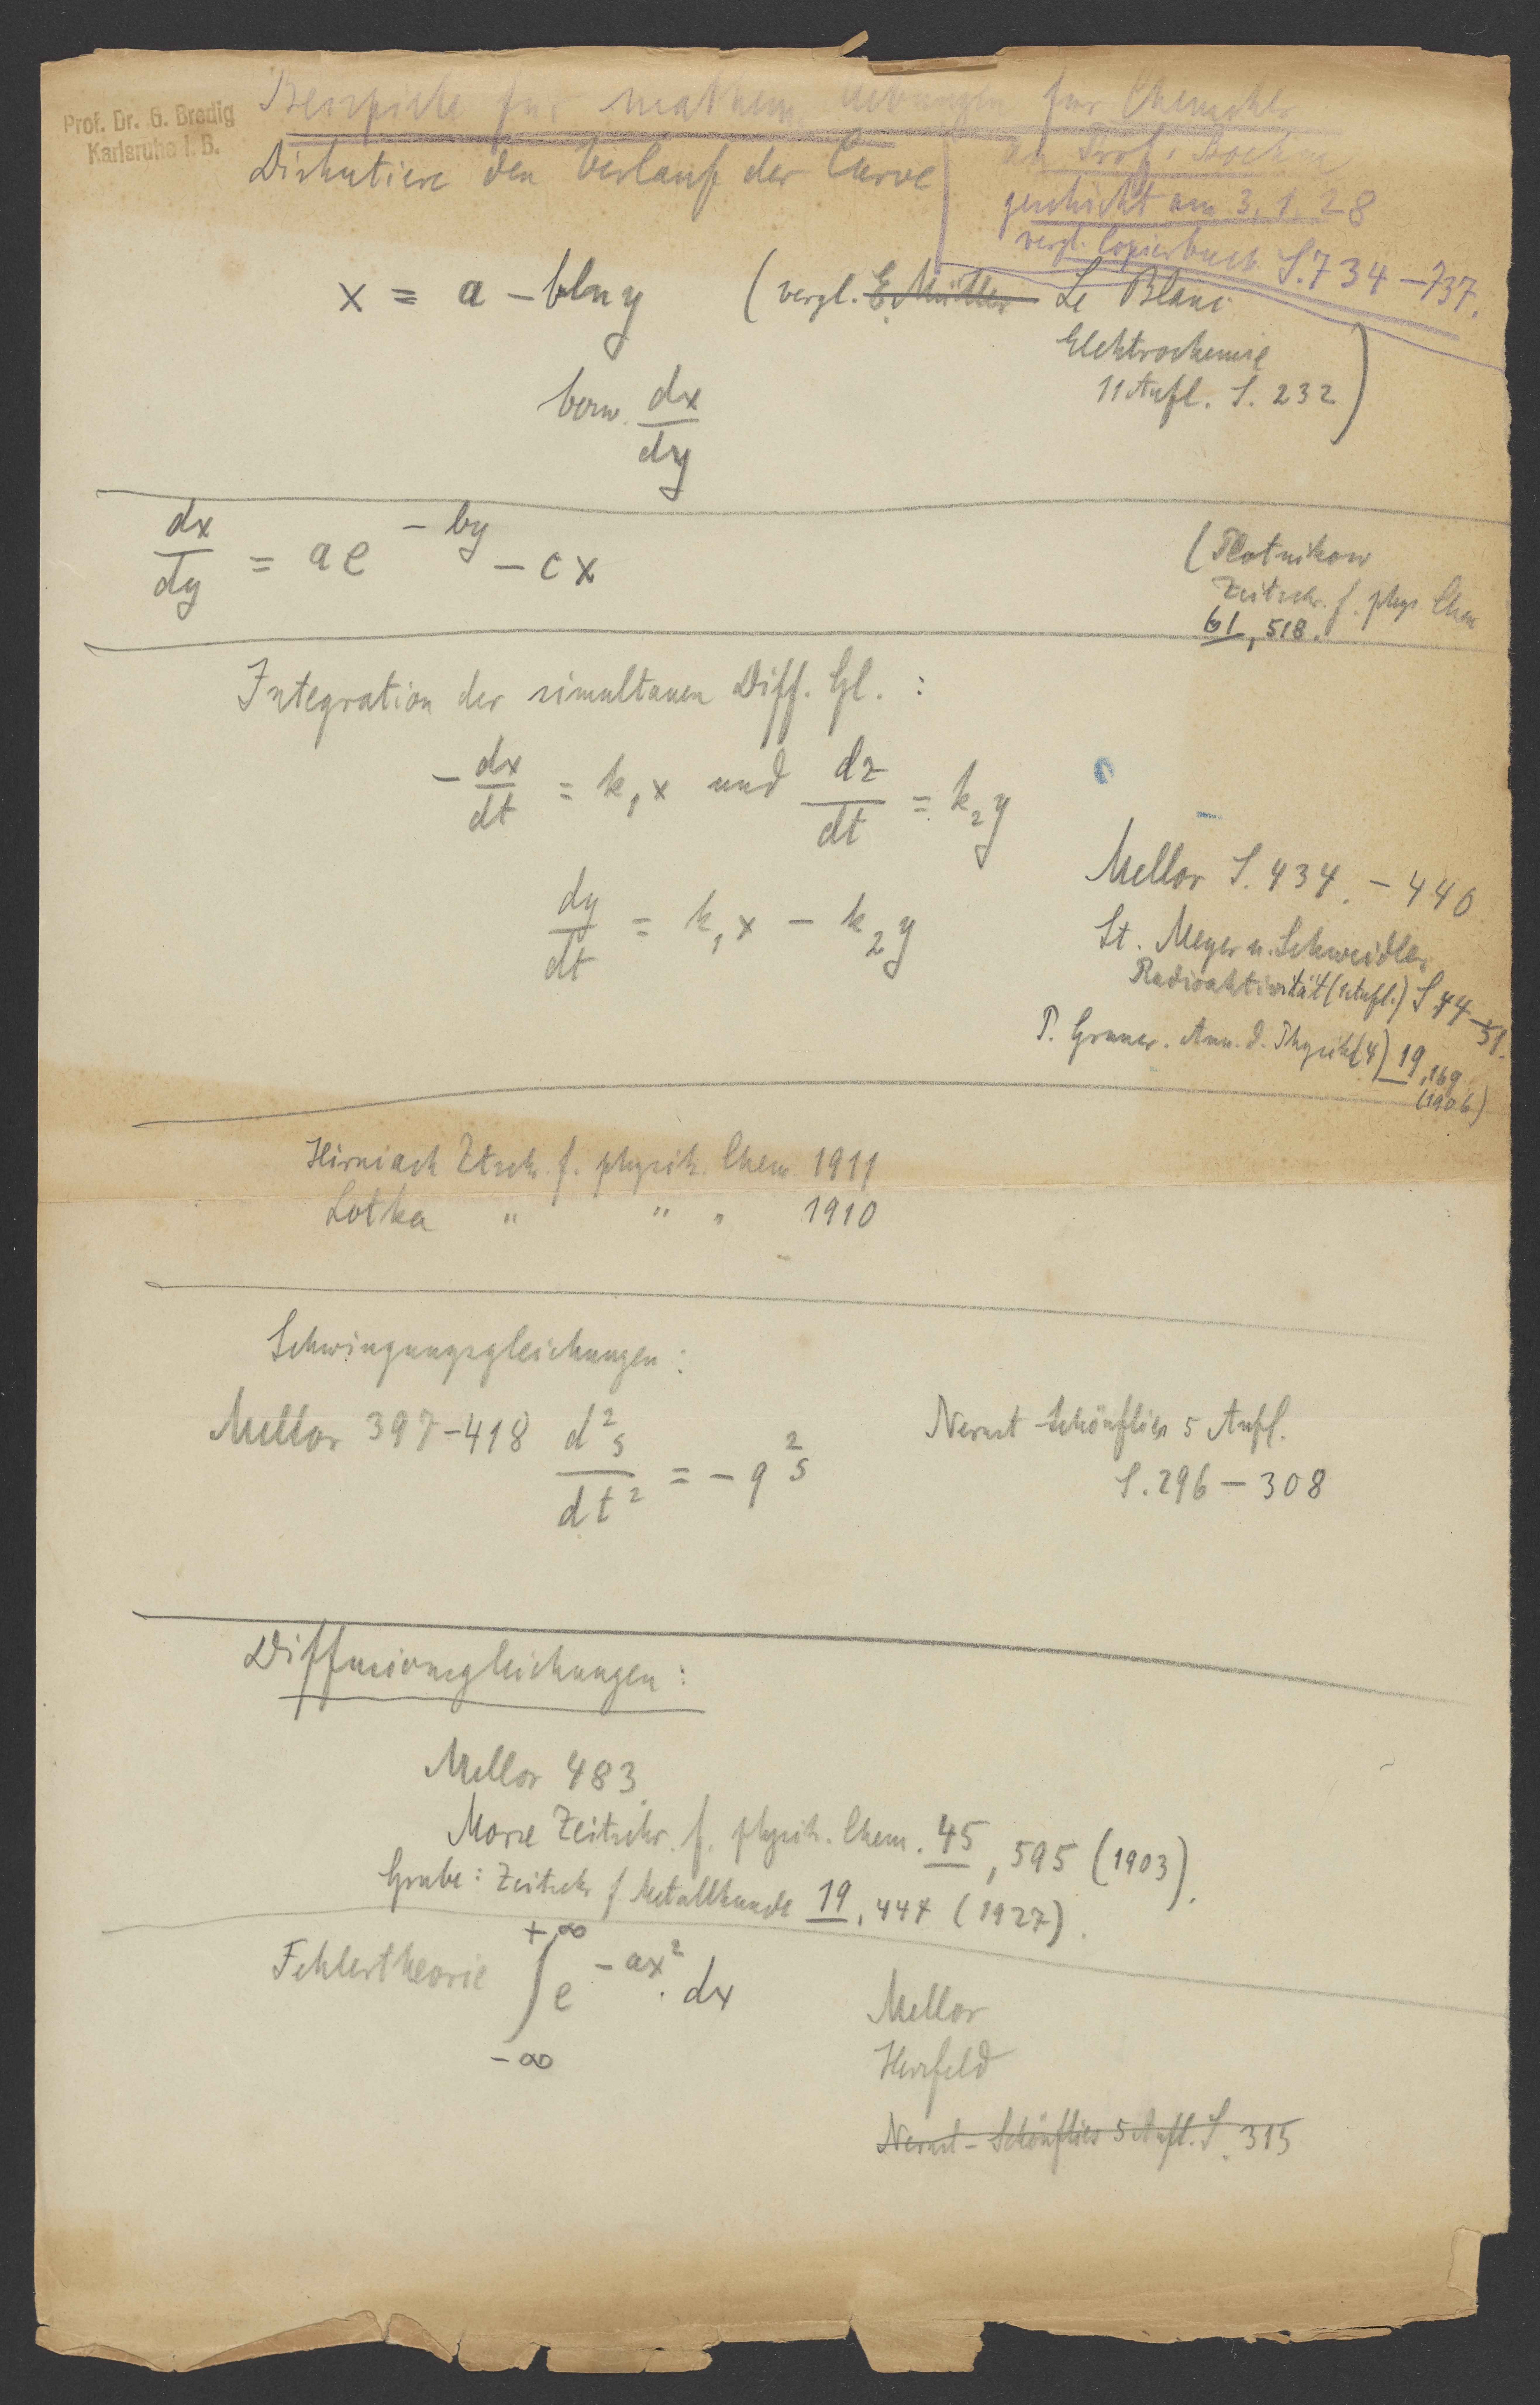 Prof. Dr. G. Bredig
Karlsruhe i. B.
Beispiele für mathem. Uebungen für Chemiker
an Prof. Boehm
geschickt am 3. 1. 28
vergl. Copierbuch S. 734–737.
Diskutiere den Verlauf der Curve
x = a – b ln y (vergl. E. Müller Le Blanc
Elektrochemie
11 Aufl. S. 232)
bezw. dx/dy
dx/dy = a e^{– by} – c x
(Plotnikow
Zeitschr. f. phys. Chem
61, 518.
Integration der simultanen Diff. Gl. :
– dx/dt = k₁ x und dz/dt = k₂ y
dy/dt = k₁ x – k₂ y
Mellor S. 434. – 440
St. Meyer u. Schweidler
Radioaktivität (1 Aufl.) S 44–51.
P. Gruner. Ann. d. Physik (4) 19, 169
(1906)
Hirniack Ztsch. f. physik. Chem. 1911
Lotka " " " 1910
Schwingungsgleichungen :
Mellor 397–418 d²s/dt² = – q² s
Nernst-Schönflies 5 Aufl.
S. 296 – 308
Diffusionsgleichungen :
Mellor 483.
Morse Zeitschr. f. physik. Chem. 45, 595 (1903).
Grube : Zeitschr f Metallkunde 19, 447 (1927).
Fehlertheorie ∫_{–∞}^{+∞} e^{– ax²} . dx
Mellor
Herzfeld
Nernst – Schönflies 5 Aufl. S. 315